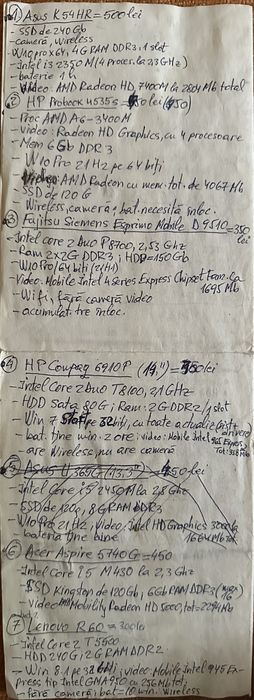 ① Asus K54HR = 500 lei
- SSD de 240Gb
- cameră, wireless
- W10 pro x64, 4G RAM DDR3, 1 slot
- Intel i3 2350M (4 proces. la 2,3 GHz)
- baterie 1 h
- Video: AMD Radeon HD, 7400M la total
② HP Probook 4535s = lei
- Proc AMD A6-3400M
- Video: Radeon HD Graphics, cu 4 procesoare
- Mem 6Gb DDR3
- W10 Pro 21H2 pe 64 biți
- Video: AMD Radeon cu mem. tot. de 4067Mb
- SSD de 120G
- Wireless, cameră, bat. necesită înloc.
③ Fujitsu Siemens Esprimo Mobile D9510 = 350 lei
- Intel core 2 Duo P8700, 2,53 Ghz
- Ram 2x2G DDR3; HDD = 150Gb
- W10 Pro/64 biți
- Video. Mobile Intel 4 series Express Chipset fam. la
1695 Mb
- Wifi, fără cameră video
- acumulat. tre înloc.
④ HP Compaq 6910P (14,") = lei
- Intel Core 2 Duo T8100, 2,1 GHz
- HDD Sata 80G; Ram: 2G DDR2/1 slot
- Win 7 32biți, cu toate actualizări
- bat. tine win. 2 ore; video: Mobile Intel 965 Express
- are Wireless, nu are cameră
⑤ Asus U36SG (13.3") = 450 lei
- Intel Core i5 2450M la 2,8 Ghz
- SSD de 120G, 8G RAM DDR3
- W10 Pro 21H2, Video: Intel HD Graphics 3000 la
- bateria tine bine
⑥ Acer Aspire 5740G = 450
- Intel Core i5 M430 la 2,3 GHz
- SSD Kingston de 120Gb; 6Gb RAM DDR3
- Video: Mobility Radeon HD 5000, tot = 2294Mb
⑦ Lenovo R60 = 300 lei
- Intel Core 2 T5500
- HDD 240G; 2G RAM DDR2
- Win 8.1 pe 32 biți; video: Mobile Intel 945 Ex-
press tip Intel GMA950 cu 256Mb tot;
- fără cameră; bat = 10 win. Wireless